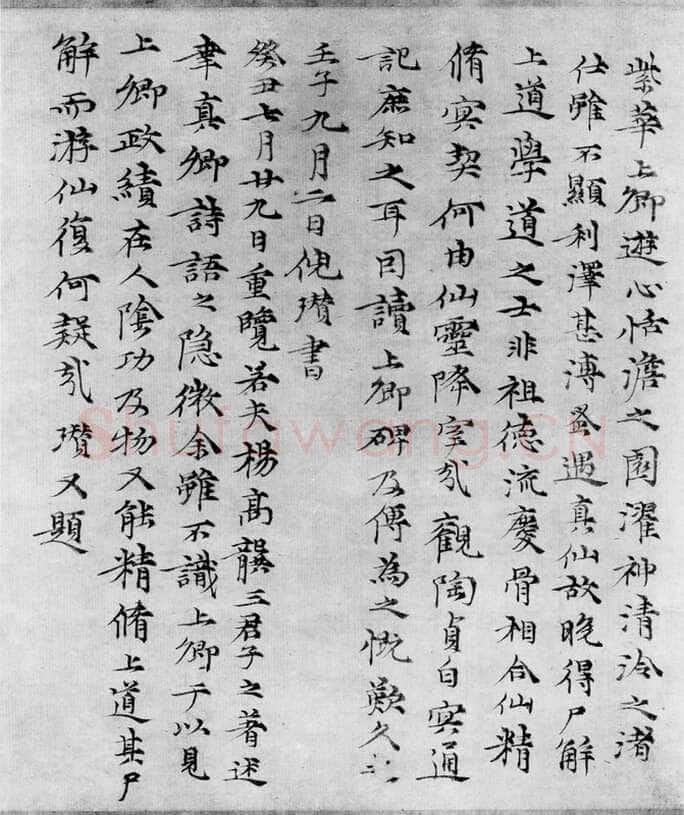 紫華上卿遊心恬澹之園濯神清泠之渚
仕雖不顯利澤甚溥蚤遇真仙故晚得尸解
上道學道之士非祖德流慶骨相合仙精
脩冥契何由仙靈降室哉觀陶貞白冥通
記庶知之耳因讀上卿碑及傳為之慨歎久
壬子九月二日倪瓚書
癸丑七月廿九日重覽若夫楊高龔三君子之著述
韋真卿詩語之隱微余雖不識上卿于以見
上卿政績在人陰功及物又能精脩上道其尸
解而游仙復何疑哉瓚又題
Shufawang.CN